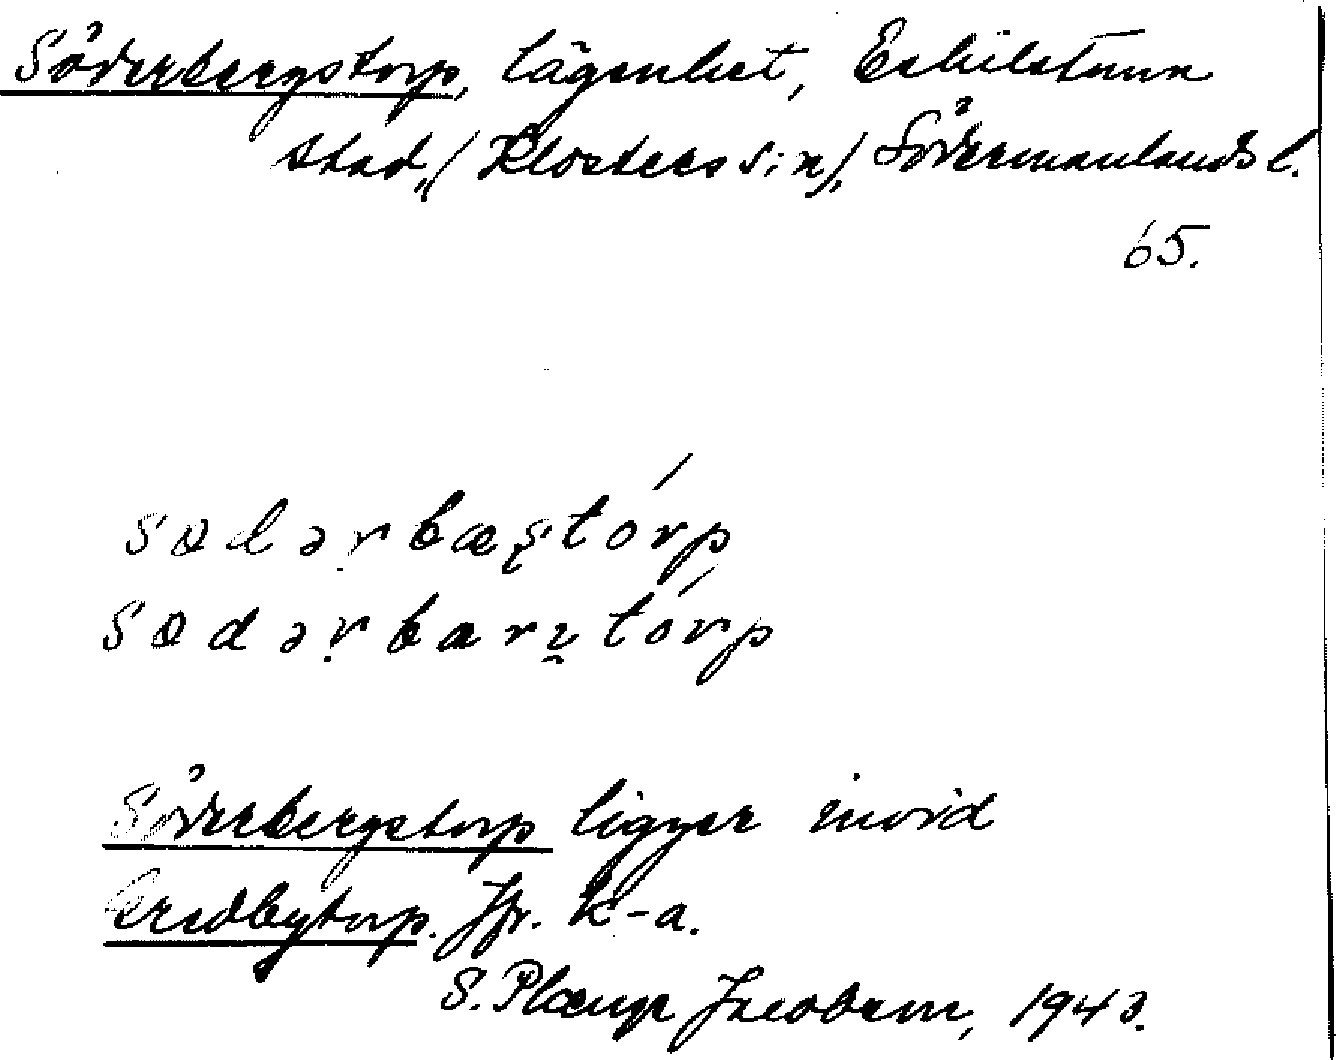 Söderbergstorp, lägenhet, Eskilstuna
stad, (Klosters s:n), Södermanlands l.
65.
södərbæstórp
södərbarstórp
Söderbergstorp ligger invid
Gredbytorp. Jfr. k-a.
S. Plænge Jacobson, 1943.